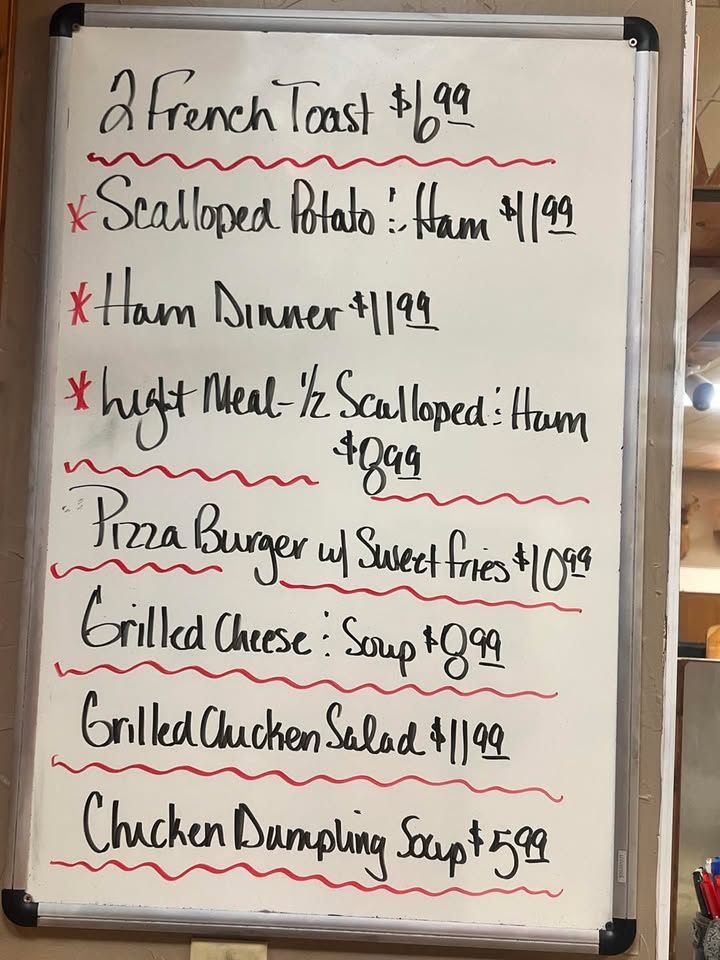 2 French Toast $6.99
* Scalloped Potato & Ham $11.99
* Ham Dinner $11.99
* Light Meal - 1/2 Scalloped & Ham
$8.99
Pizza Burger w/ Sweet fries $10.99
Grilled Cheese & Soup $8.99
Grilled Chicken Salad $11.99
Chicken Dumpling Soup $5.99